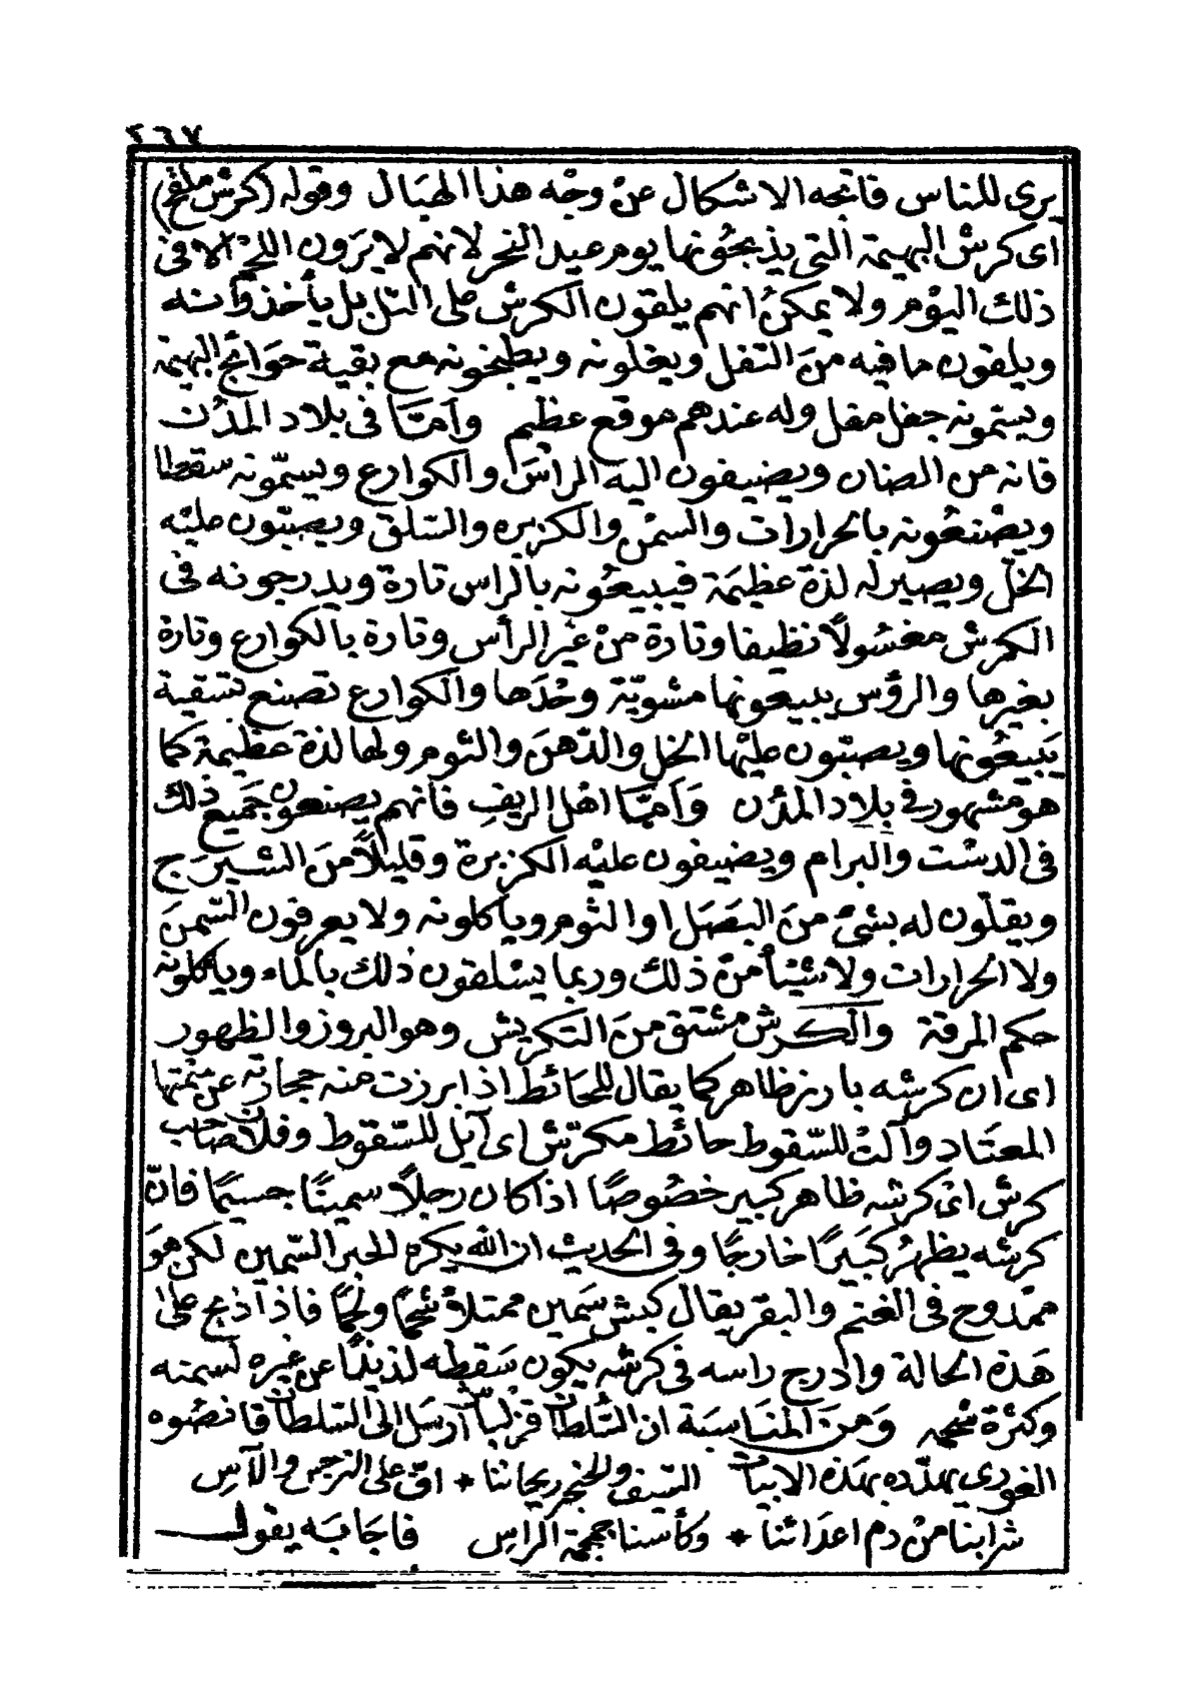 ٢٦٧
يرى للناس فاتجه الاشكال عن وجه هذا الهبال وقوله (كرش ملقح)
اى كرش البهيمة التى يذبحونها يوم عيد النحر لانهم لا يرون اللحم الا فى
ذلك اليوم ولا يمكن انهم يلقون الكرش على التل بل يأخذونه
ويلقون ما فيه من التفل ويغلونه ويطبخونه مع بقية حوائج البهيمة
ويسمونه جغل مغل وله عندهم موقع عظيم وأمّا فى بلاد المدن
فانه من الضان ويضيفون اليه الراس والكوارع ويسمّونه سقطا
ويصنعونه بالحرارات والسمن والكزبره والسلق ويصبّون عليه
الخلّ ويصير له لذة عظيمة فيبيعونه بالراس تارة ويدرجونه فى
الكرش مغسولًا نظيفا وتارة من غير الرأس وتارة بالكوارع وتارة
بغيرها والرؤس يبيعونها مشويّة وحدها والكوارع تصنع بتسقية
يبيعونها ويصبّون عليها الخل والدّهن والثوم ولها لذة عظيمة كما
هو مشهور فى بلاد المدن وأمّا اهل الريف فانهم يصنعون جميع ذلك
فى الدست والبرام ويضيفون عليه الكزبرة وقليلًا من الشيرج
ويقلّون له بشئ من البصل او الثوم وياكلونه ولا يعرفون السّمن
ولا الحرارات ولا شيئا من ذلك وربما يسلقون ذلك بالماء وياكلونه
حكم المرقة والكرش مشتق من التكريش وهو البروز والظهور
اى ان كرشه بارز ظاهر كما يقال للحائط اذا برزت منه حجارته عن سمتها
المعتاد وآلت للسّقوط حائط مكرّش اى آيل للسّقوط وفلان صاحب
كرش اى كرشه ظاهر كبير خصوصًا اذا كان رجلًا سمينًا جسيمًا فانّ
كرشه يظهر كبيرًا خارجًا وفى الحديث ان الله يكره الحبر السّمين لكن هو
ممدوح فى الغنم والبقر يقال كبش سمين ممتلأ شحمًا ولحمًا فاذا ذبح على
هذه الحالة وادرج راسه فى كرشه يكون سقطه لذيذًا عن غيره لسمنه
وكثرة شحمه ومن المناسبة ان السّلطان قزلباش أرسل الى السّلطان قانصوه
الغورى يهدّده بهذه الابيات السّيف والخنجر ريحاننا * افّ على النرجس والآس
شرابنا من دم اعدائنا * وكأسنا جمجمة الراس فاجابه يقول